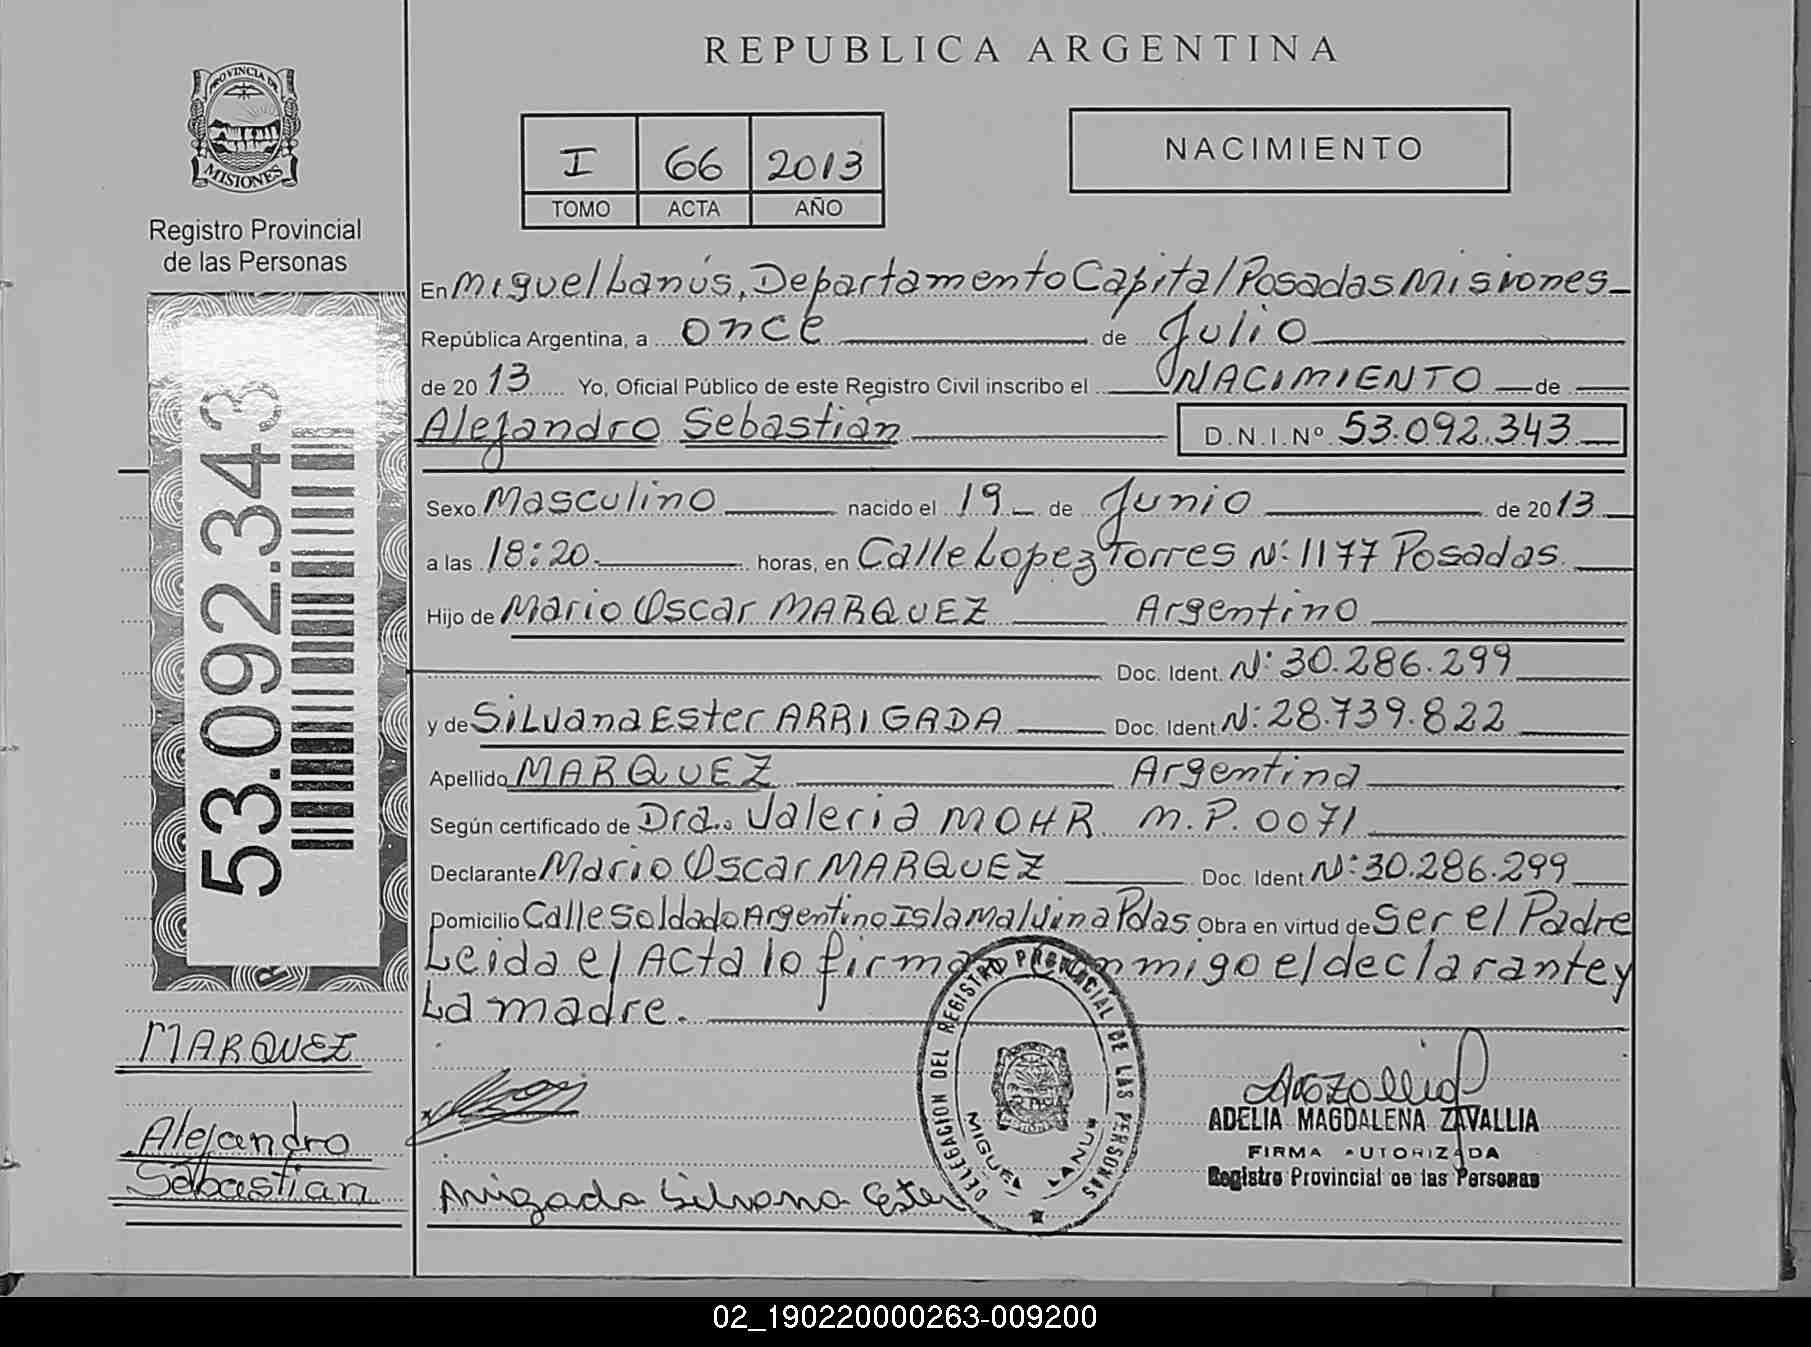 REPUBLICA ARGENTINA
PROVINCIA DE
MISIONES
Registro Provincial
de las Personas
I 66 2013
TOMO ACTA AÑO
NACIMIENTO
En Miguel Lanús, Departamento Capital Posadas Misiones
República Argentina, a once de Julio
de 2013 Yo, Oficial Público de este Registro Civil inscribo el NACIMIENTO de
Alejandro Sebastián D.N.I.Nº 53.092.343
Sexo Masculino nacido el 19 de Junio de 2013
a las 18:20 horas, en Calle Lopez Torres Nº 1177 Posadas.
Hijo de Mario Oscar MARQUEZ Argentino
Doc. Ident. Nº 30.286.299
y de Silvana Ester ARRIGADA Doc. Ident. Nº 28.739.822
Apellido MARQUEZ Argentina
Según certificado de Dra. Valeria MOHR M.P. 0071
Declarante Mario Oscar MARQUEZ Doc. Ident. Nº 30.286.299
Domicilio Calle Soldado Argentino Isla Malvina Pdas Obra en virtud de Ser el Padre
Leida el Acta lo firman Conmigo el declarante y
La madre.
53.092.343
MARQUEZ
Alejandro
Sebastian
Arrigada Silvana Ester
DELEGACION DEL REGISTRO PROVINCIAL DE LAS PERSONAS
MIGUEL LANUS
ADELIA MAGDALENA ZAVALLIA
FIRMA AUTORIZADA
Registro Provincial de las Personas
02_190220000263-009200